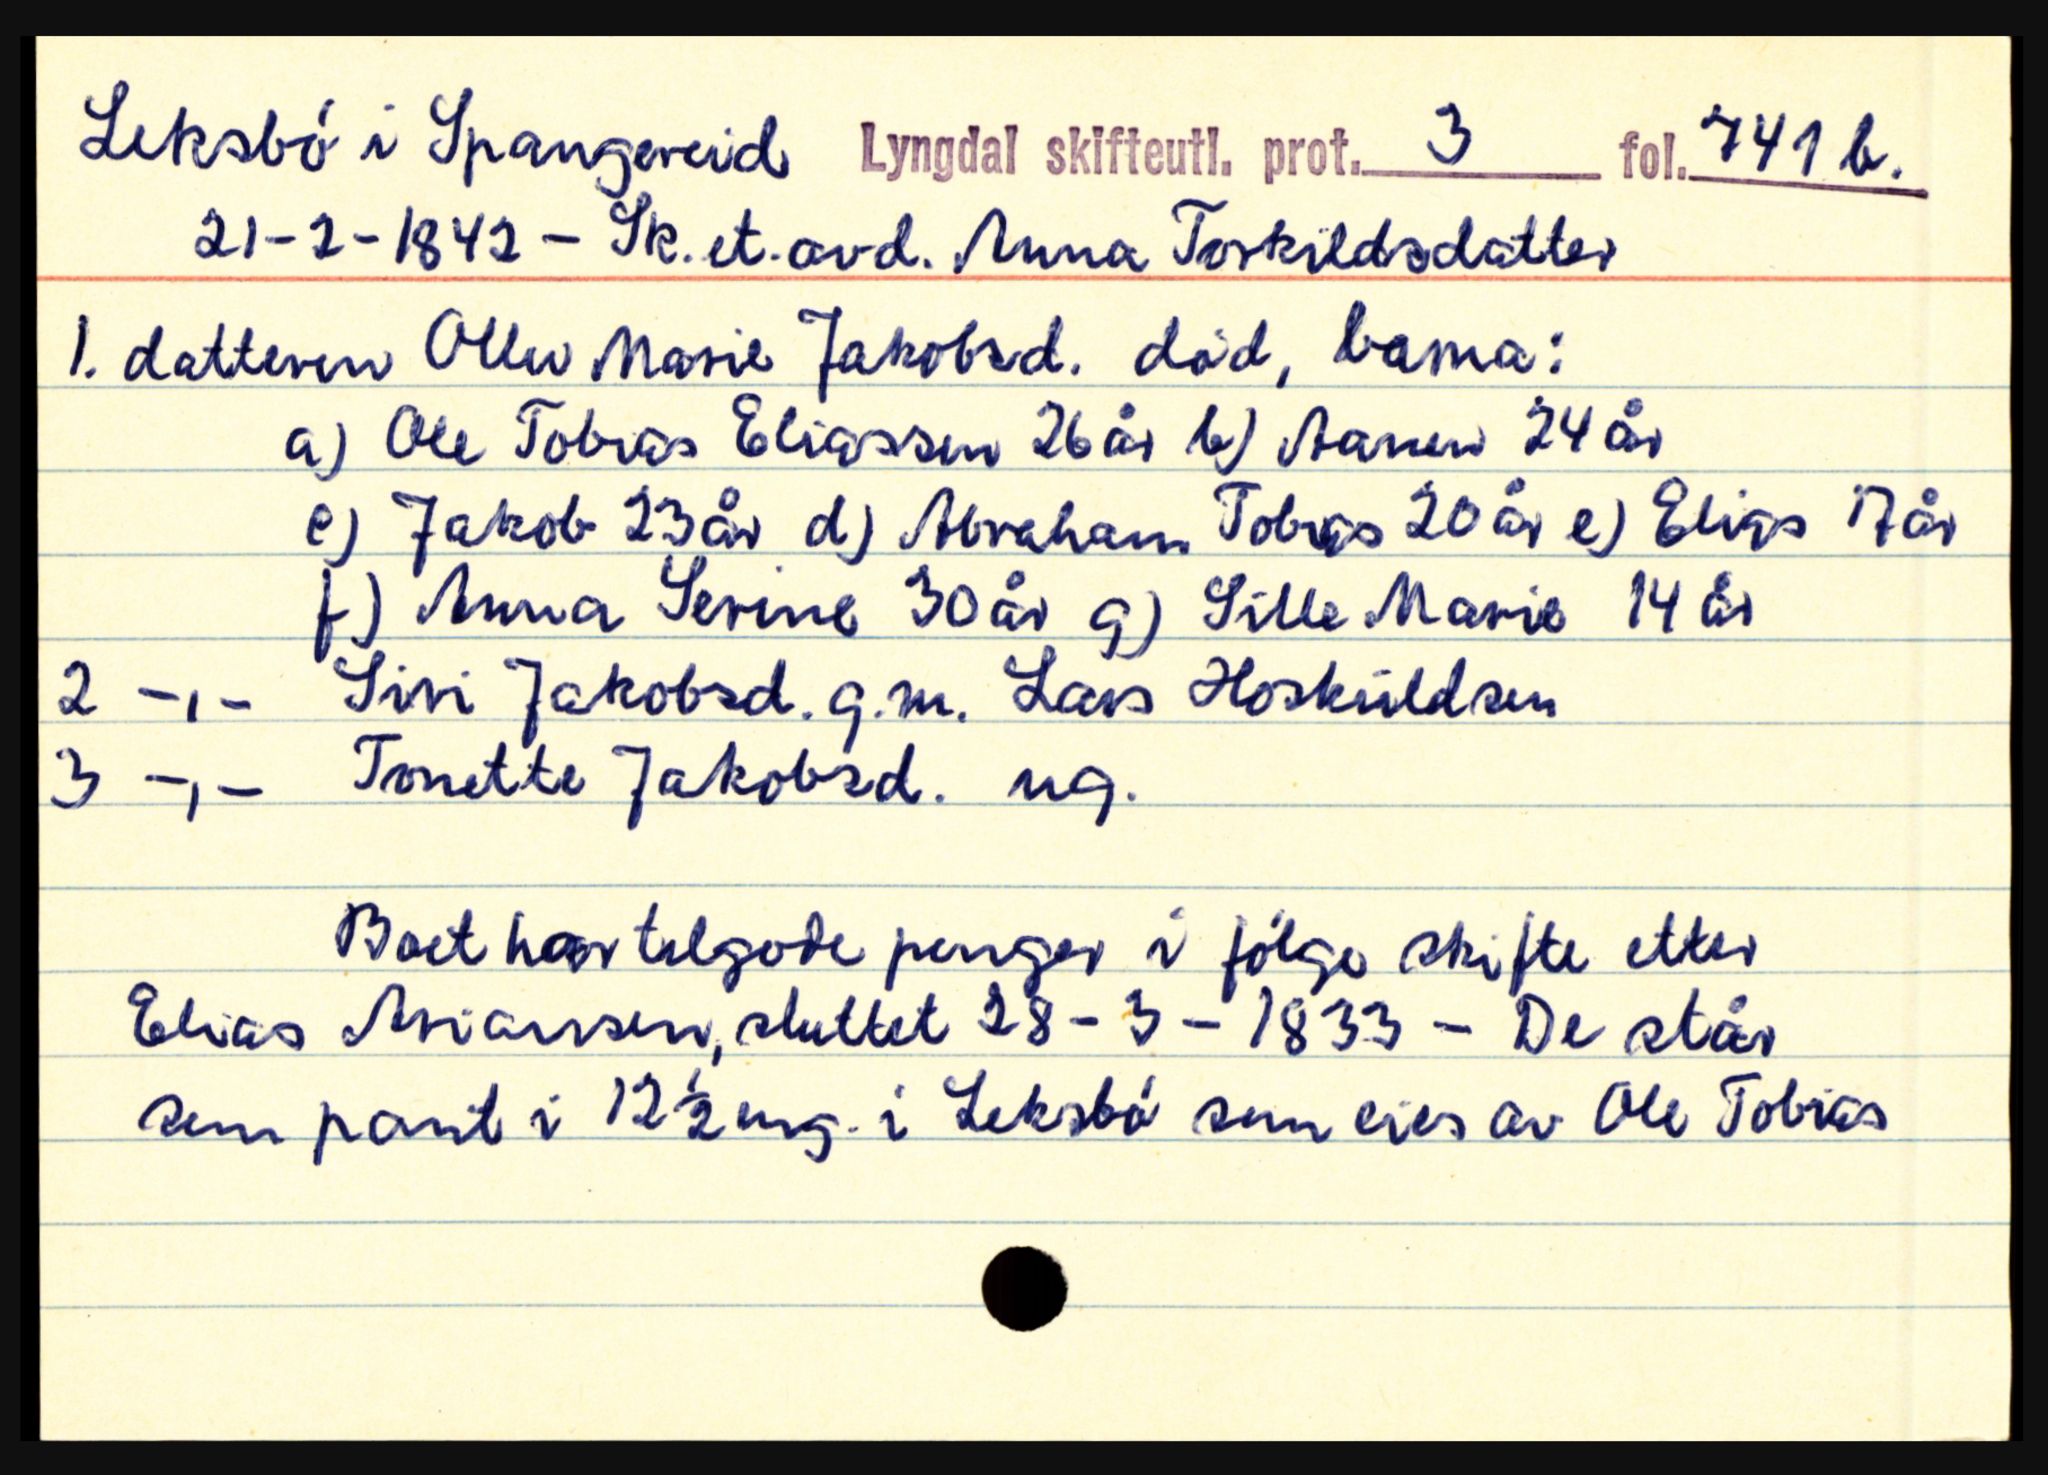 Leksbö i Spangereid Lyngdal skifteutl. prot. 3 fol. 741 b.
21-2-1842 - Sk. et. avd. Anna Torkildsdatter
1. datteren Ollu Marie Jakobsd. död, barna:
a) Ole Tobias Eliassen 26 år b) Aanen 24 år
c) Jakob 23 år d) Abraham Tobias 20 år e) Elias 17 år
f) Anna Serine 30 år g) Sille Marie 14 år
2 -,- Siri Jakobsd. g.m. Lars Hoskuldsen
3 -,- Tonette Jakobsd. ug.
Boet har tilgode penger i følge skifte etter
Elias Ariansen, sluttet 28-3-1833 - De står
som pant i 12 1/2 eng. i Leksbö som eies av Ole Tobias